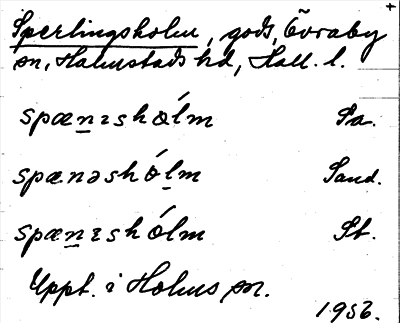 Sperlingsholm, gods, Övraby
sn, Halmstads hd, Hall. l.
spæṉɪshólm Sa.
spænəshóḻm Sand.
spæṉɪshólm St.
Uppt. i Holms sn.
1956.